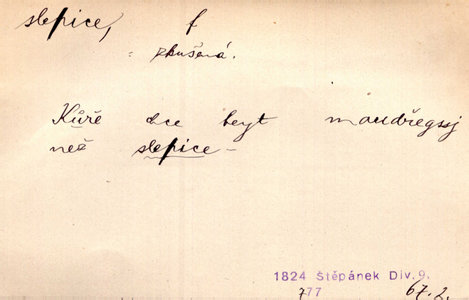 slepice, f
= zkušená.
Kůře dce beyt maudřegssj
než slepice –
1824 Štěpánek Div. 9.
777 67. 2.